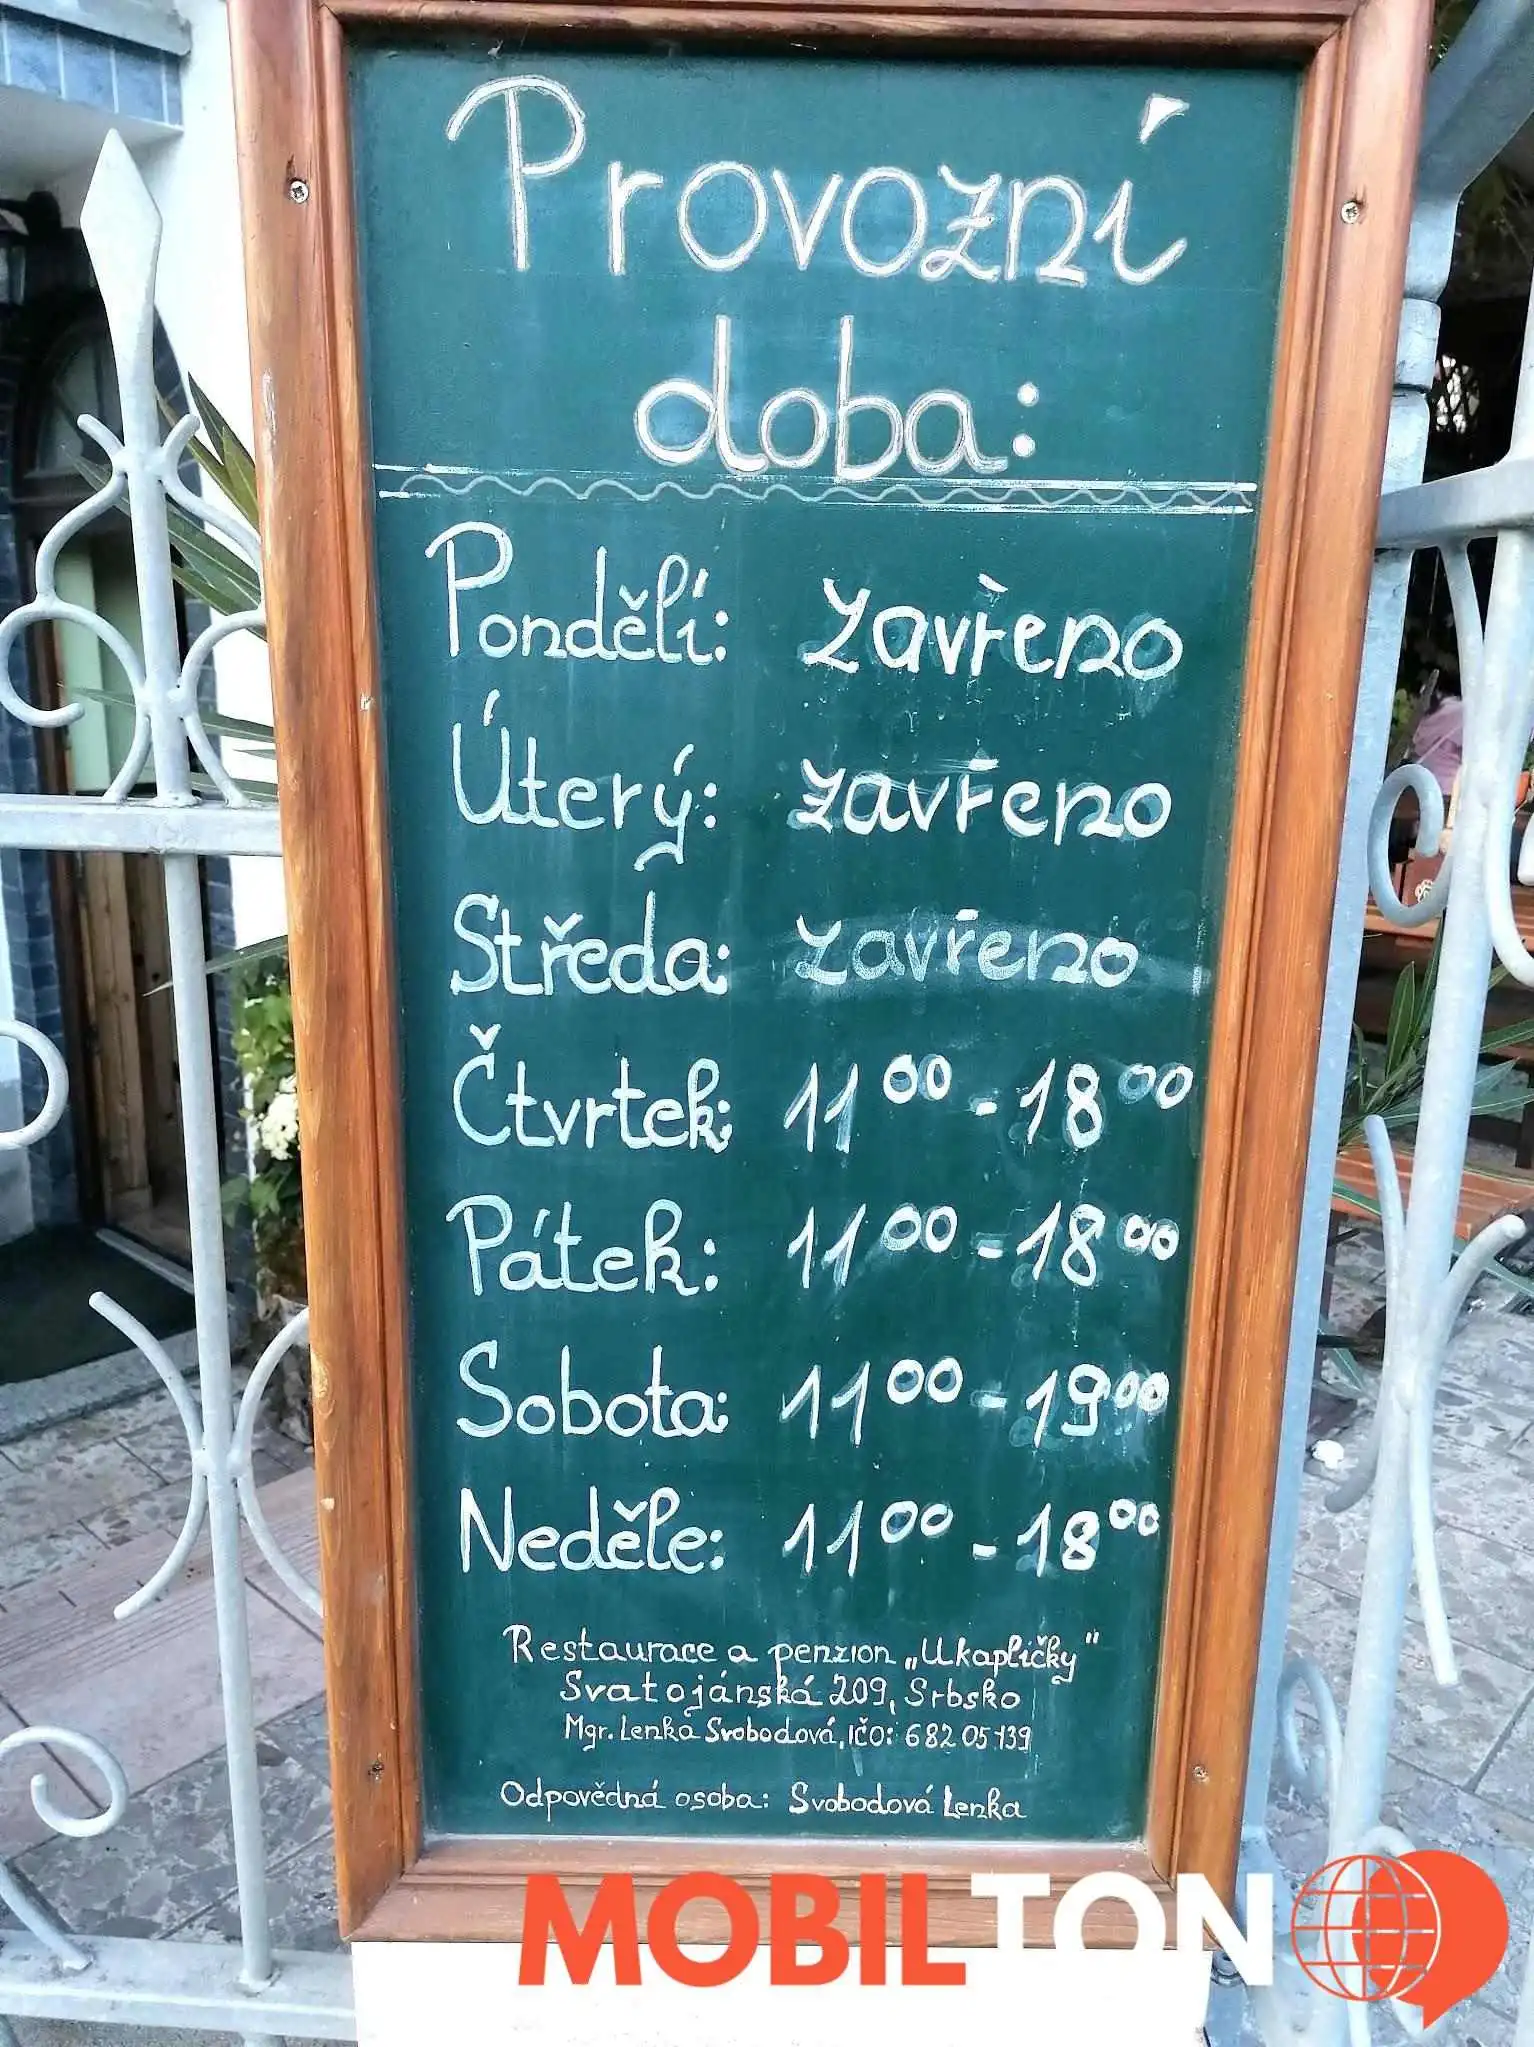 Provozní
doba:
Pondělí: zavřeno
Úterý: zavřeno
Středa: zavřeno
Čtvrtek: 11 00 - 18 00
Pátek: 11 00 - 18 00
Sobota: 11 00 - 19 00
Neděle: 11 00 - 18 00
Restaurace a penzion „U kapličky“
Svatojánská 209, Srbsko
Mgr. Lenka Svobodová, IČO: 682 05 139
Odpovědná osoba: Svobodová Lenka
MOBILTON